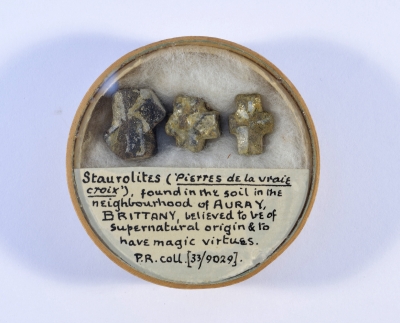 Staurolites ('Pierres de la vraie
croix'), found in the soil in the
neighbourhood of AURAY,
BRITTANY, believed to be of
supernatural origin & to
have magic virtues.
P.R. coll. [33/9029].